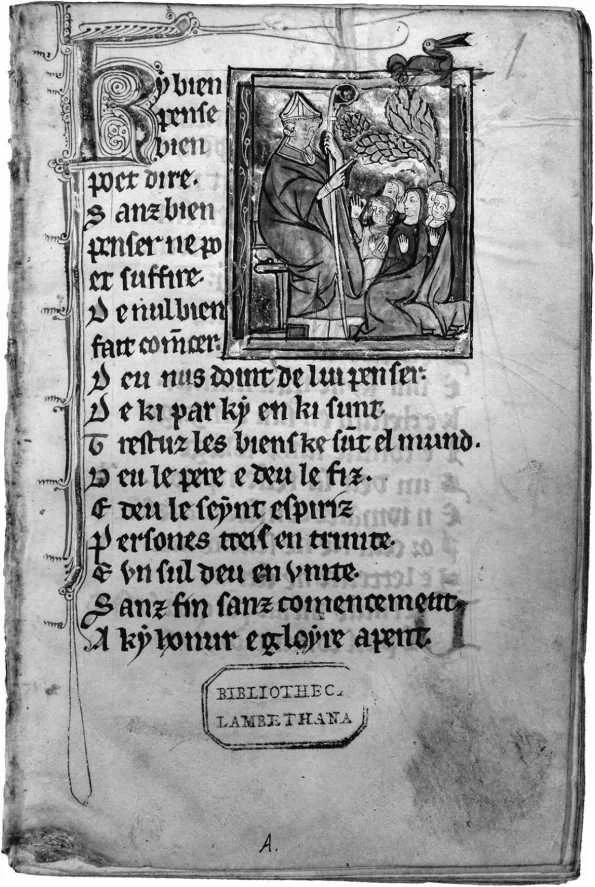 1
Ky bien
pense
bien
poet dire.
Sanz bien
penser ne po
et suffire.
De nul bien
fait com̄cer.
Deu nus doint de lui penser.
De ki par ky en ki sunt.
Trestuz les biens ke sūt el mund.
Deu le pere e deu le fiz.
E deu le seynt espiriz
Persones treis en trinite.
E vn sul deu en vnite.
Sanz fin sanz comencement.
A ky honur e gloyre apent.
BIBLIOTHEC.
LAMBETHANA
A.